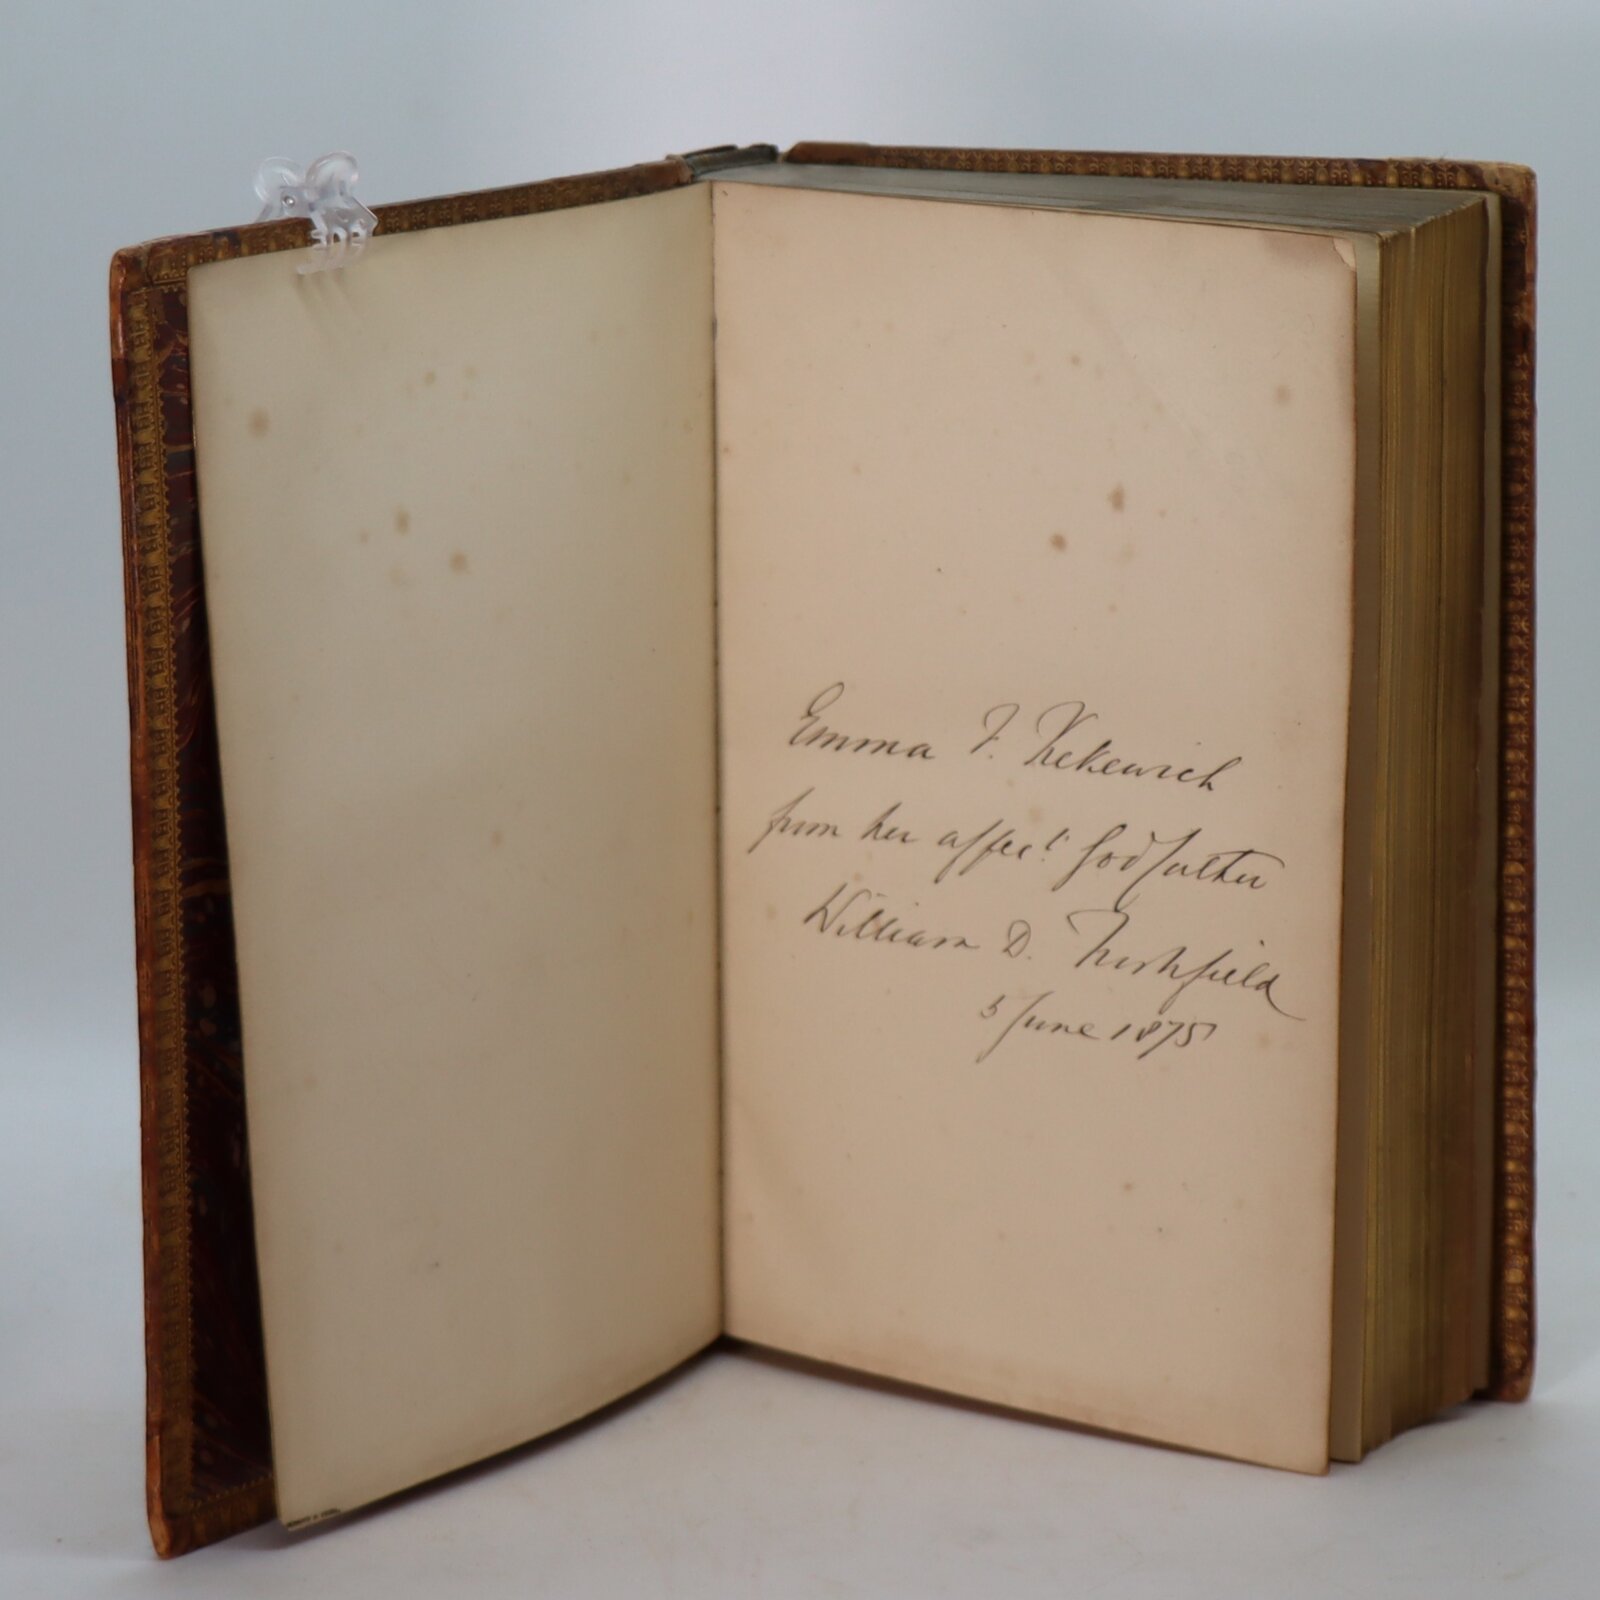 Emma F. Kekewich
from her affect. Godfather
William D. Freshfield
5 June 1875